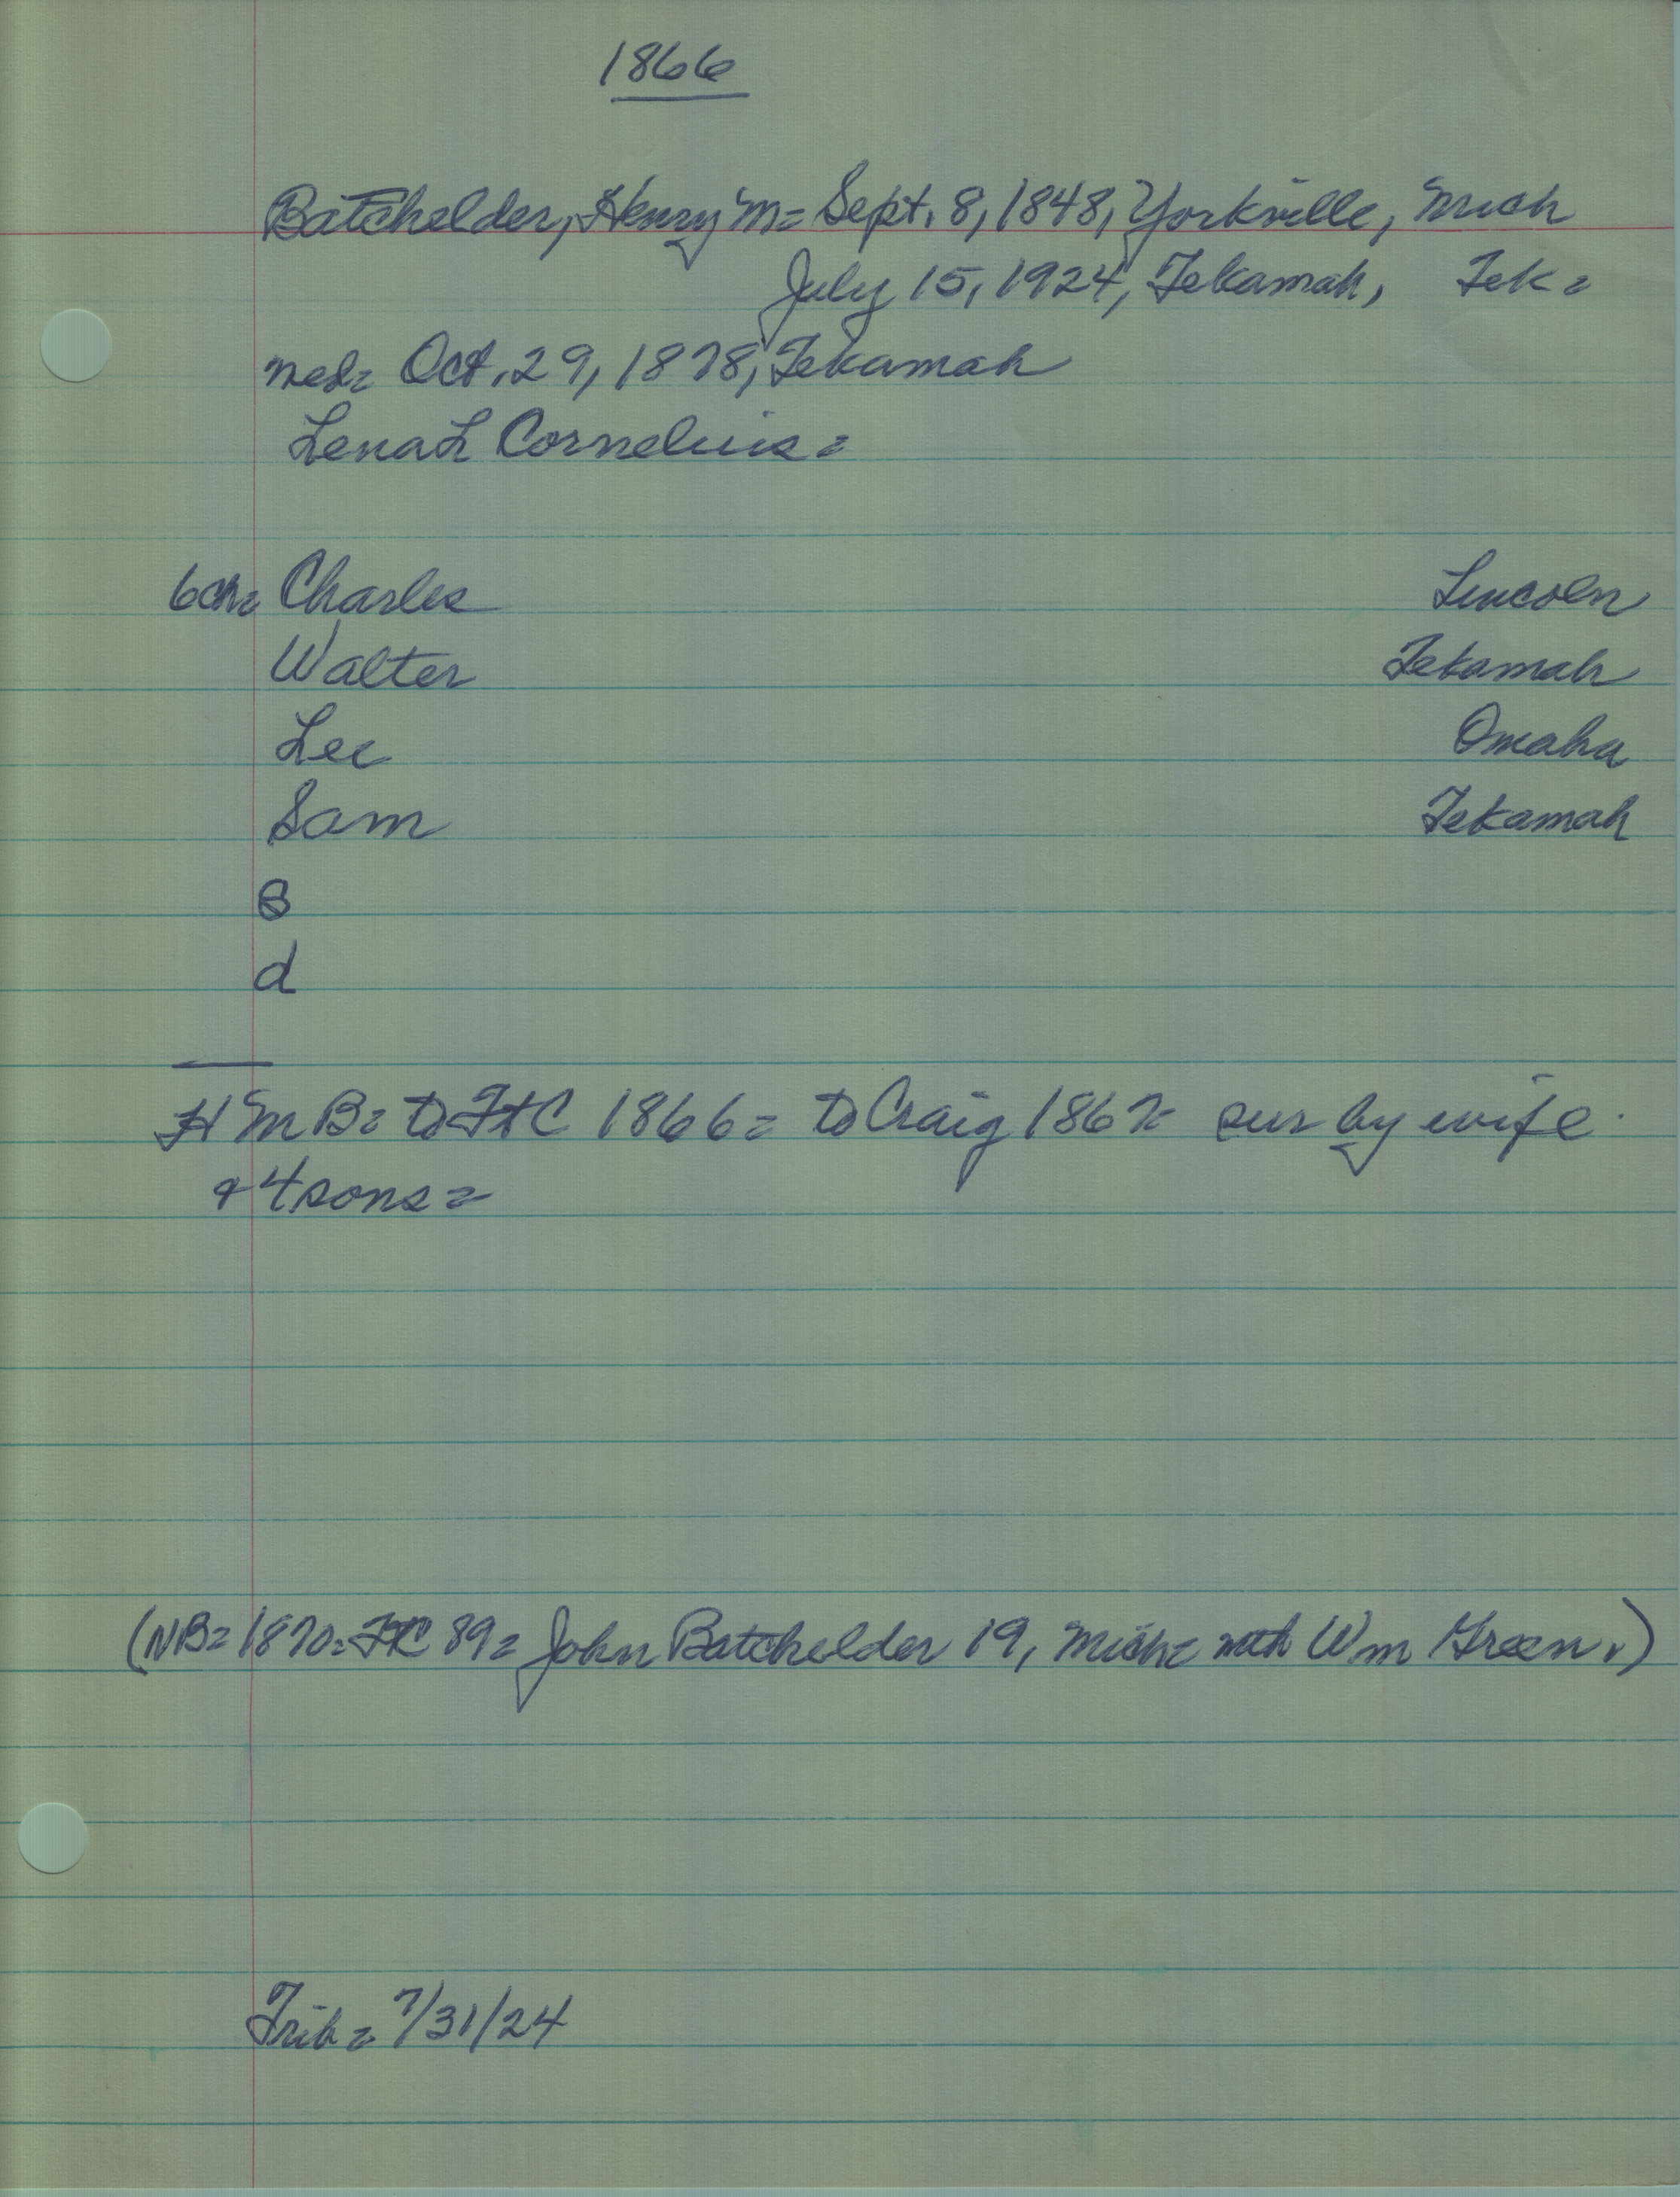 1866
Batchelder, Henry M= Sept. 8, 1848, Yorkville, Mich
July 15, 1924, Tekamah, Tek=
med= Oct. 29, 1878, Tekamah
Lena L Cornelius=
6ch= Charles Lincoln
Walter Tekamah
Lee Omaha
Sam Tekamah
B
d
H M B= to FtC 1866= to Craig 1867= sur by wife
& 4 sons=
(NB= 1870= FtC 89= John Batchelder 19, Mich= with Wm Green.)
Trib= 7/31/24